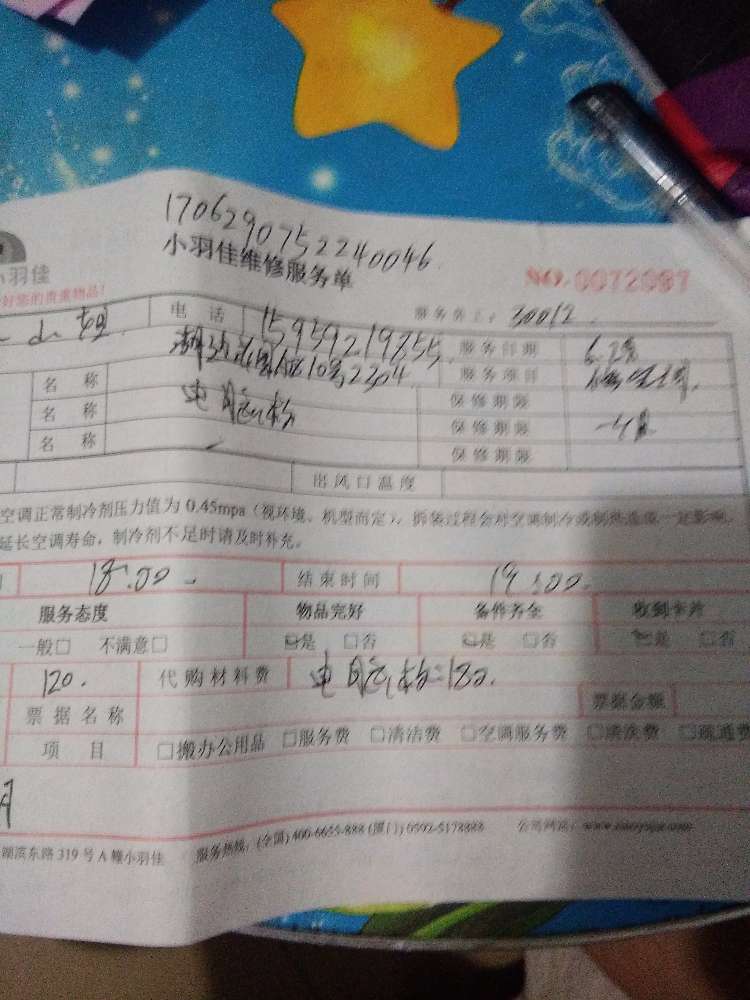 1706290752240046
小羽佳维修服务单
NO.0072097
小羽佳
好您的贵重物品!
电话 15939219855
服务员工: 30012
服务日期
名称 服务项目
名称 电脑板 保修期限
名称 保修期限
保修期限
出风口温度
空调正常制冷剂压力值为0.45mpa(视环境、机型而定),拆装过程会对空调制冷或制热造成一定影响。
延长空调寿命,制冷剂不足时请及时补充。
18:00 结束时间 19:00
服务态度 物品完好 备件齐全 收到卡片
一般□ 不满意□ ☑是 □否 ☑是 □否 ☑是 □否
120. 代购材料费 电脑板:180.
票据名称 票据金额
项目 □搬办公用品 □服务费 □清洁费 □空调服务费 □清洗费 □疏通费
月
湖滨东路319号A幢小羽佳 服务热线:(全国)400-6655-888(厦门)0592-5178888 公司网站:www.xiaoyujia.com